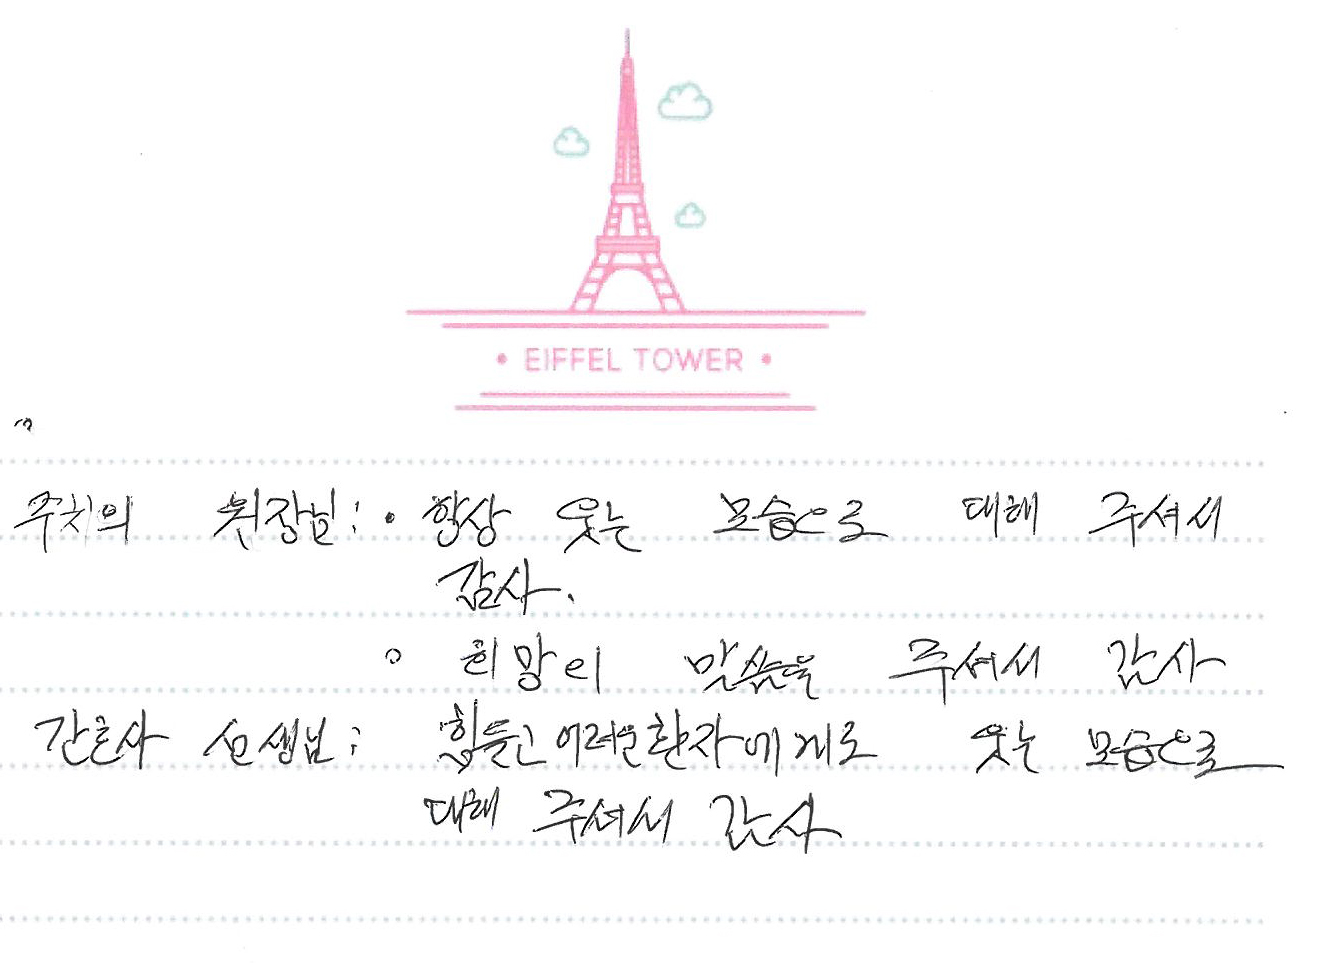 • EIFFEL TOWER •
주치의 원장님: • 항상 웃는 모습으로 대해 주셔서
감사.
○ 희망의 말씀을 주셔서 감사
간호사 선생님: 힘들고 어려운 환자에게로 웃는 모습으로
대해 주셔서 감사